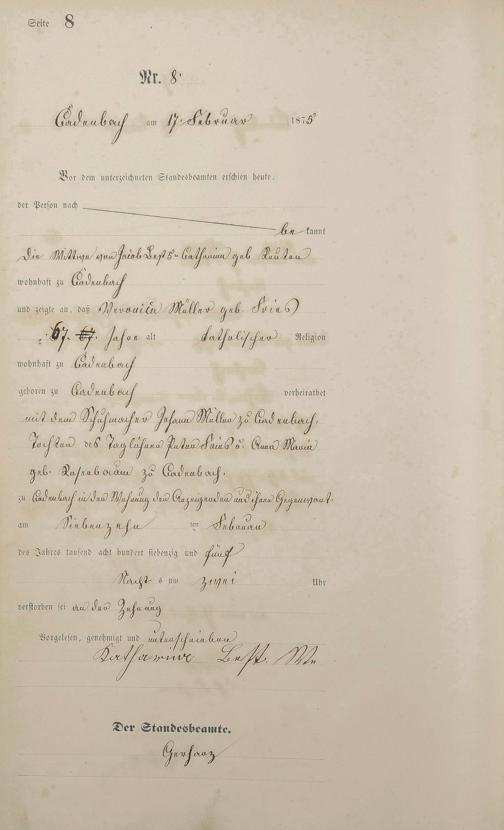 Seite 8
Nr. 8.
Cadenbach am 17. Februar 1875
Vor dem unterzeichneten Standesbeamten erschien heute,
der Person nach
be kannt
die Wittwe von Jacob Best 5r Catharina geb. Reuter
wohnhaft zu Cadenbach
und zeigte an, daß Veronica Müller geb. Fries
67 Jahre alt katholischer Religion
wohnhaft zu Cadenbach
geboren zu Cadenbach verheirathet
mit dem Schuhmacher Johann Müller zu Cadenbach,
Tochter des Taglöhners Peter Fries u. Anna Maria
geb. Rosenbaum zu Cadenbach,
zu Cadenbach in der Wohnung der Anzeigenden und ihrer Gegenwart
am Siebenzehn ten Februar
des Jahres tausend acht hundert siebenzig und fünf
Nacht s um zwei Uhr
verstorben sei an der Zehrung
Vorgelesen, genehmigt und unterschrieben
Katharina Best We
Der Standesbeamte.
Gerharz